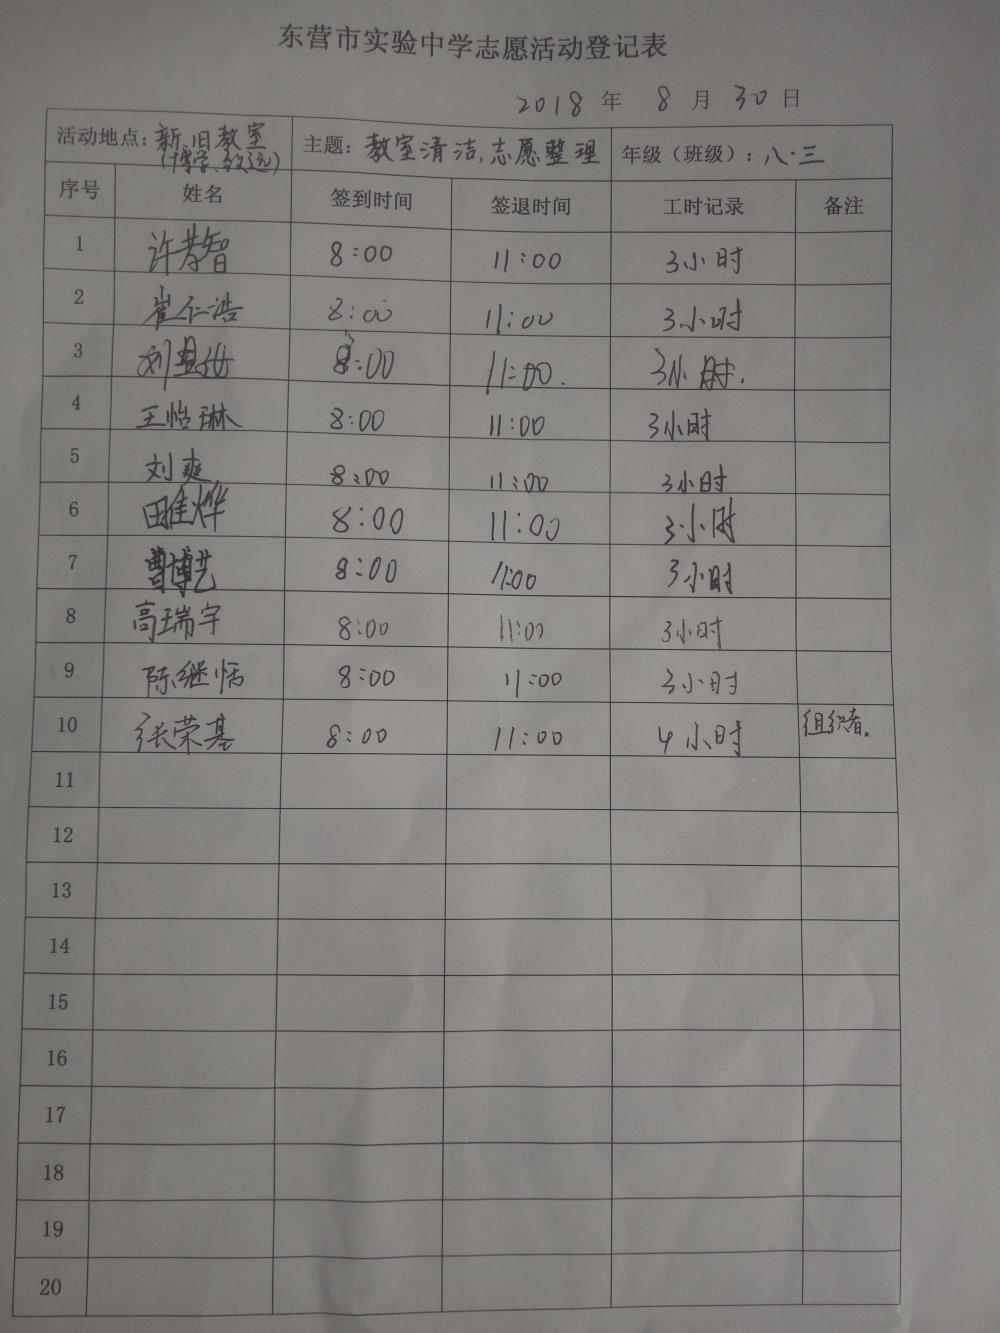 东营市实验中学志愿活动登记表
2018 年 8 月 30 日
活动地点：新、旧教室（博学、致远） 主题：教室清洁、志愿整理 年级（班级）：八·三
序号 姓名 签到时间 签退时间 工时记录 备注
1 许孝智 8:00 11:00 3小时
2 崔仁浩 8:00 11:00 3小时
3 刘 8:00 11:00. 3小时.
4 王怡琳 8:00 11:00 3小时
5 刘爽 8:00 11:00 3小时
6 田佳烨 8:00 11:00 3小时
7 曹博艺 8:00 11:00 3小时
8 高瑞宇 8:00 11:00 3小时
9 陈继恬 8:00 11:00 3小时
10 张荣基 8:00 11:00 4小时 组织者.
11
12
13
14
15
16
17
18
19
20